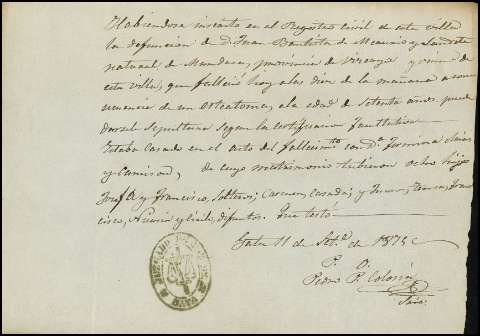 Habiendose inscrito en el Registro Civil de esta villa
la defuncion de D. Juan Bautista de
natural de Mundaca, provincia de Vizcaya y vecino de
esta villa, que falleció hoy a las diez de la mañana a conse
cuencia de un a la edad de setenta años puede
darsele sepultura segun la certificacion facultativa
Estaba casado en el acto del fallecimto con Da Fermina
y de cuyo matrimonio tubieron ocho hijos
Josefa y Francisco, solteros; Carmen, casada; y Juan, Fran
cisco, y difuntos. Que testó
11 de Set.e de 1875
P. O.
Pedro P. Colonia